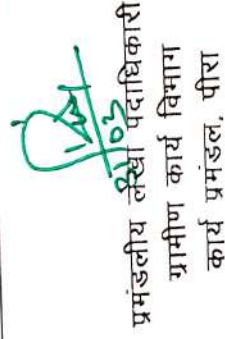 31/03
प्रमंडलीय लेखा पदाधिकारी
ग्रामीण कार्य विभाग
कार्य प्रमंडल, पीरो